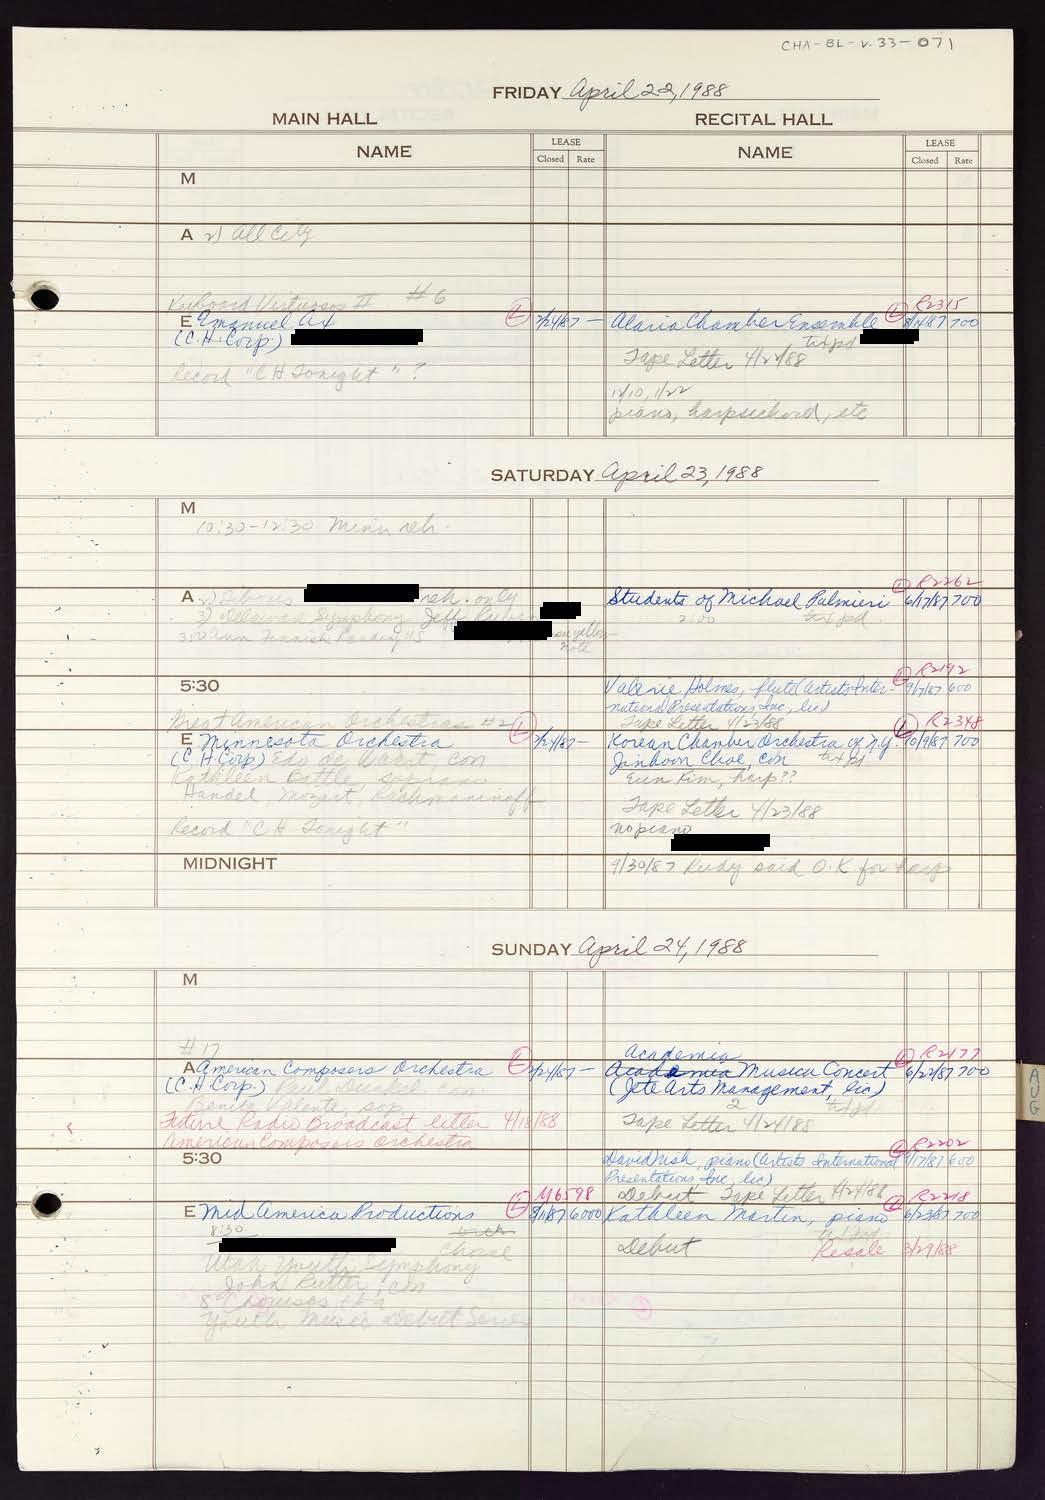 CHA-BL-v.33-071
FRIDAY April 22, 1988
MAIN HALL RECITAL HALL
NAME LEASE Closed Rate NAME LEASE Closed Rate
M
A 2) All City
Keyboard Virtuosos II #6 L L R2315
E Emanuel Ax 2/24/87 — Alaria Chamber Ensemble 700
(C.H. Corp.) txt pd
Tape Letter 4/22/88
Record "CH Tonight"?
12/10, 1/22
piano, harpsichord, etc
SATURDAY April 23, 1988
M
10:30-12:30 Minn reh.
L R2262
A reh. only Students of Michael Palmieri 6/17/87 700
Symphony Jeff 2:00 txt pd
note
L R2192
5:30 Valerie Holmes, flute (Artists Inter- 9/7/87 600
national Presentations, Inc, lic)
Great American Orchestras #2 L Tape Letter 4/23/88 L R2348
E Minnesota Orchestra 2/24/87 — Korean Chamber Orchestra of N.Y. 10/9/87 700
(C.H. Corp) Edo de Waart, con Jinhoon Choe, con txt pd
Kathleen Battle, soprano Eun Kim, harp??
Handel, Mozart, Rachmaninoff
Tape Letter 4/23/88
Record "CH Tonight" no piano
MIDNIGHT 9/30/87 Rudy said O.K for harp
SUNDAY April 24, 1988
M
#17 Academia L R2177
A American Composers Orchestra L 2/24/87 — Academia Musica Concert 6/22/87 700
(C.H. Corp.) con (Jete Arts Management, lic)
Benita Valente, sop 2 txt pd
Future Radio Broadcast letter 4/18/88 Tape Letter 4/24/88
American Composers Orchestra
L R2202
5:30 David Nish, piano (Artists International 600
Presentations Inc, lic)
L M6598 Debut Tape Letter 4/24/88 L R2218
E Mid America Productions 8/11/87 6000 Kathleen Martin, piano 6/23/87 700
8:30 txt pd
Debut Resale 3/29/88
Utah Youth Symphony
John Rutter, con
8 Choruses
Youth Music Debut Series
AUG